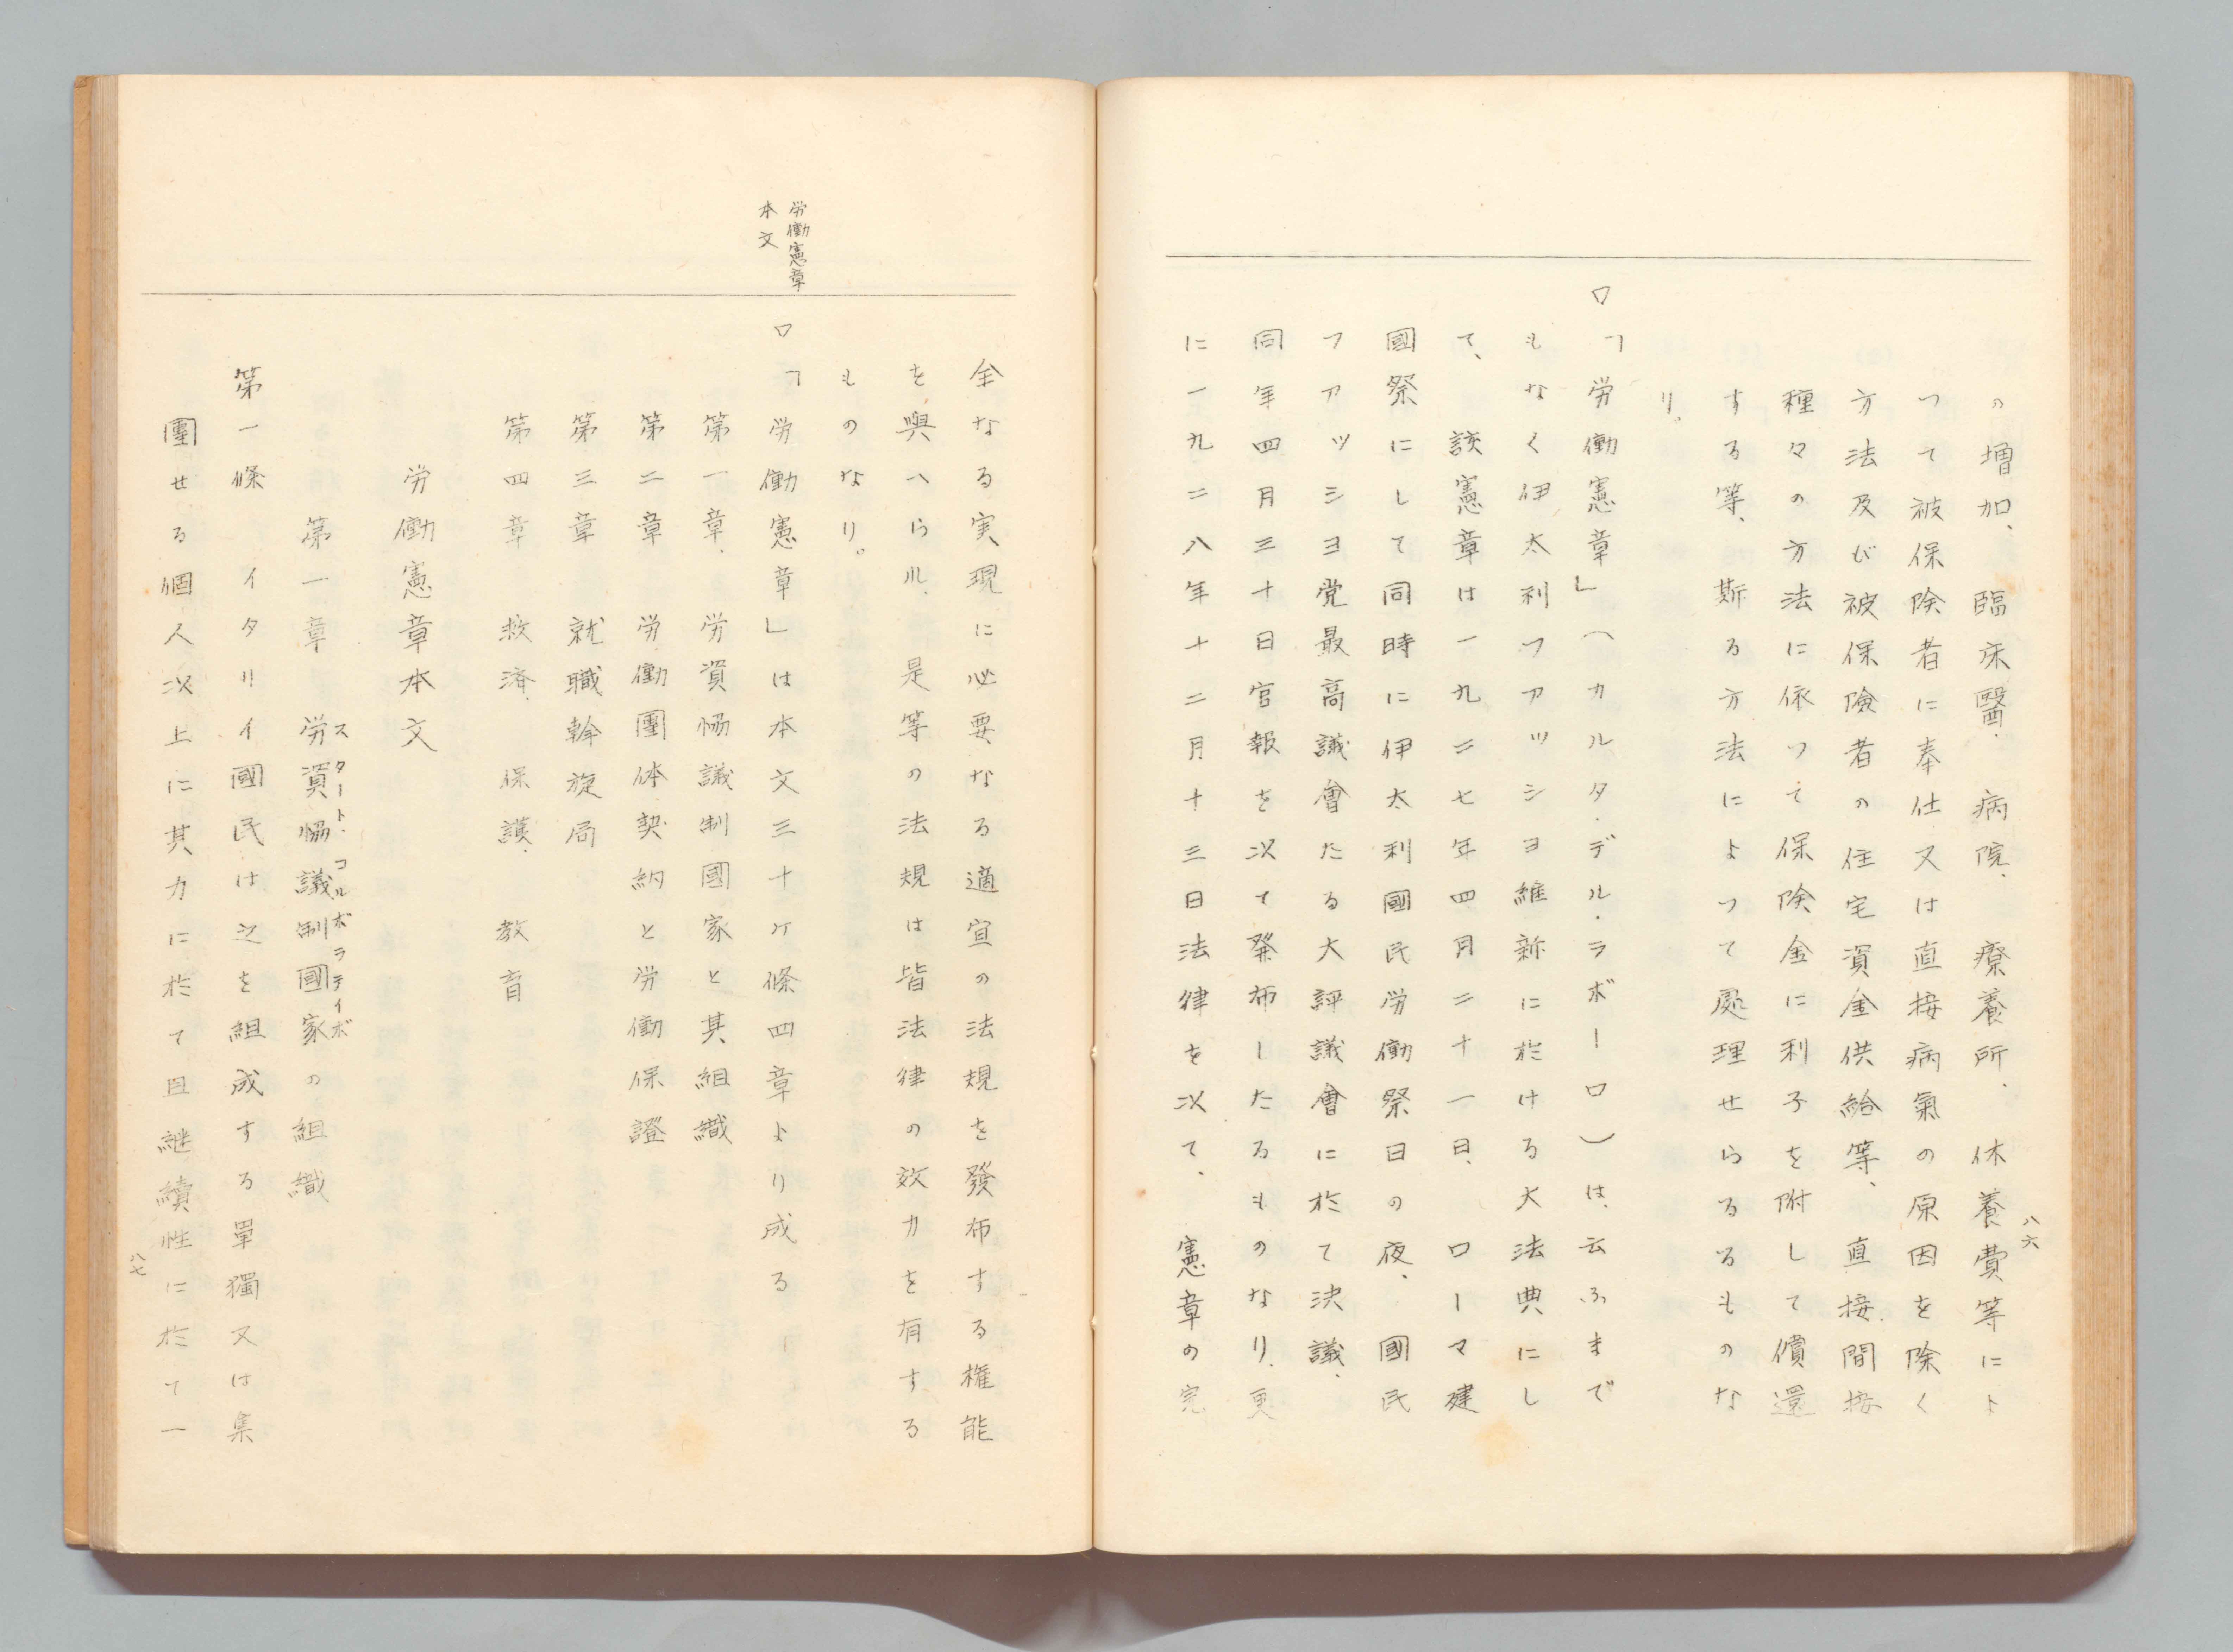 の増加、臨床醫、病院、療養所、休養費等によ
つて被保険者に奉仕又は直接病氣の原因を除く
方法及び被保險者の住宅資金供給等、直接、間接
種々の方法に依つて保険金に利子を附して償還
する等、斯る方法によつて處理せらるるものな
り、
□「労働憲章」（カルタ・デル・ラボーロ）は、云ふまで
もなく伊太利フアツシヨ維新に於ける大法典にし
て、該憲章は一九二七年四月二十一日、ローマ建
國祭にして同時に伊太利國民労働祭日の夜、國民
フアツシヨ党最高議會たる大評議會に於て決議、
同年四月三十日官報を以て発布したるものなり、更
に一九二八年十二月十三日法律を以て、憲章の完
八六
労働憲章
本文
全なる実現に必要なる適宜の法規を發布する権能
を與へらル、是等の法規は皆法律の效力を有する
ものなり。
□「労働憲章」は本文三十ケ條四章より成る―
第一章、労資協議制國家と其組織
第二章　労働團体契約と労働保證
第三章　就職斡旋局
第四章　救済、保護、教育
労働憲章本文
第一章　労資協議制國家の組織
スタート・コルポラティボ
第一條　イタリイ國民は之を組成する單獨又は集
團せる個人以上に其力に於て且継續性に於て一
八七